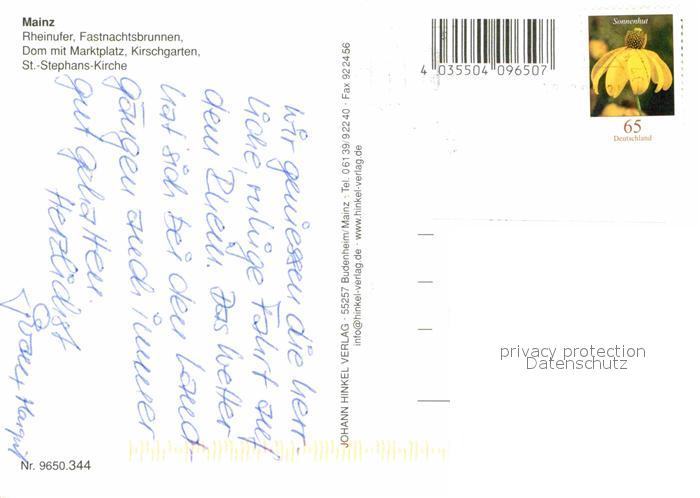 Mainz
Rheinufer, Fastnachtsbrunnen,
Dom mit Marktplatz, Kirschgarten,
St.-Stephans-Kirche
Wir geniessen die herr-
liche, ruhige Fahrt auf
dem Rhein. Das Wetter
hat sich bei den Land-
gängen auch immer
gut gehalten.
Herzlichst
Margrit
Nr. 9650.344
JOHANN HINKEL VERLAG · 55257 Budenheim/Mainz · Tel. 06139/92240 · Fax 922456
info@hinkel-verlag.de · www.hinkel-verlag.de
4 035504 096507
Sonnenhut
65
Deutschland
privacy protection
Datenschutz